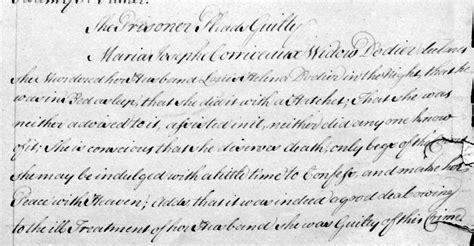 The Prisoner Pleads Guilty
Maria Josephe Corriveaux Widow Dodier declares
She Murdered her Husband Louis Helene Dodier in the Night, that he
was in Bed asleep, that she did it with a Hatchet; That she was
neither advised to it, assisted in it, neither did any one know
of it; She is conscious that she deserves death, only begs of the
She may be indulged with a little time to Confess and make her
Peace with Heaven; Adds, that it was indeed a good deal owing
to the ill Treatment of her Husband she was Guilty of this Crime